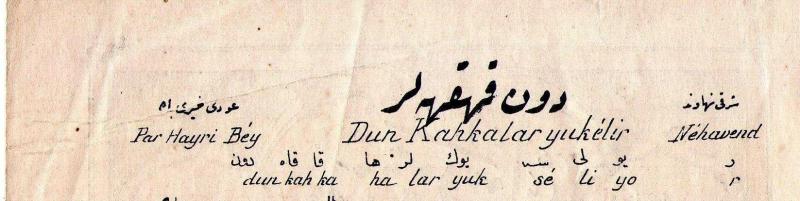 شرقی نهاوند دون قهقهه لر عودی خیری بك
Par Hayri Béy Dun Kahkalar yukélir Néhavend
دون قاه قا ها لر يوك سه لی يو ر
dun kah ka ha lar yuk sé li yo r